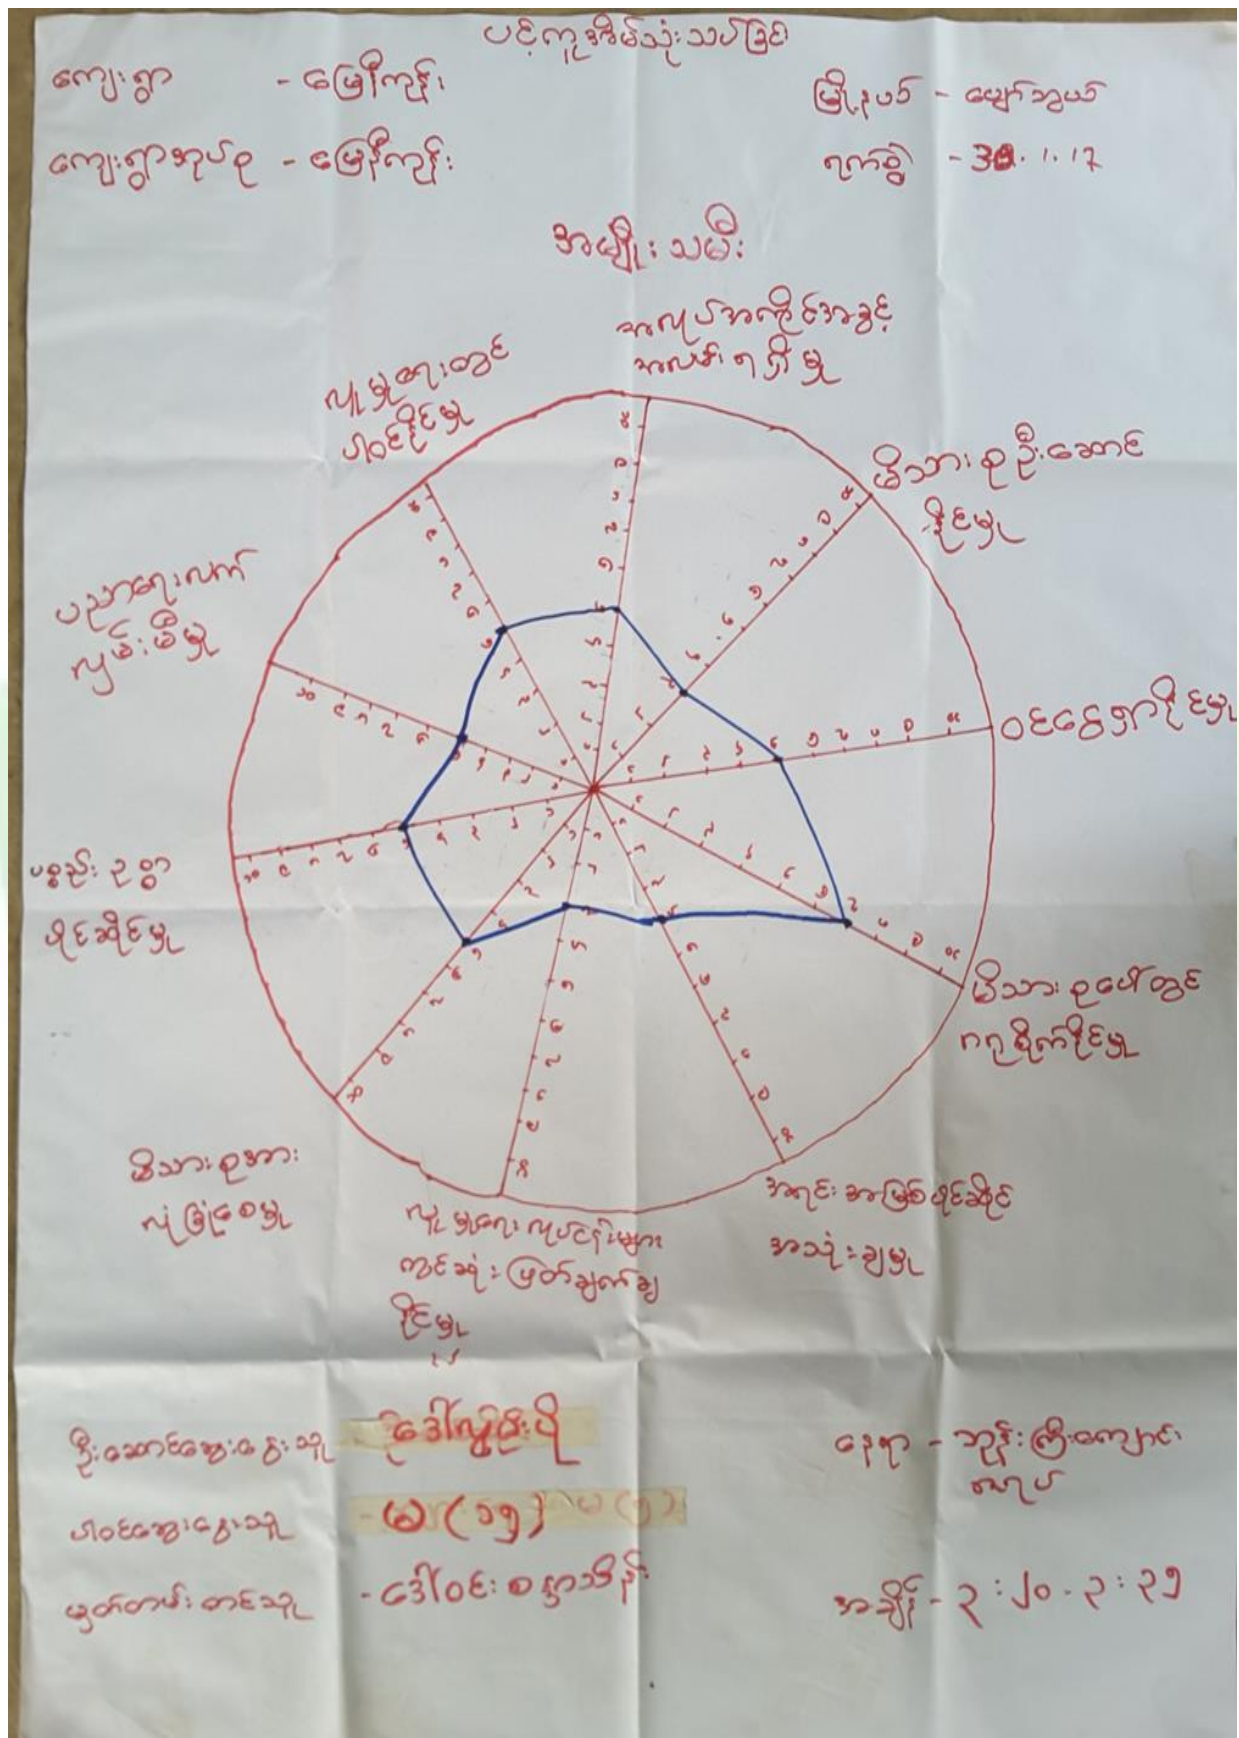 ပင့်ကူအိမ်သုံးသပ်ခြင်း
ကျေးရွာ - မြေနီကုန်း
မြို့နယ် - ပျော်ဘွယ်
ကျေးရွာအုပ်စု - မြေနီကုန်း
ရက်စွဲ - 30.1.17
အမျိုးသမီး
အလုပ်အကိုင်အခွင့်
အလမ်းရရှိမှု
မိသားစုဦးဆောင်
နိုင်မှု
ဝင်ငွေရှာနိုင်မှု
မိသားစုပေါ်တွင်
ဂရုစိုက်နိုင်မှု
အရင်းအမြစ်ပိုင်ဆိုင်
အသုံးချမှု
လူမှုရေးလုပ်ငန်းများ
ကျင်းပဆုံးဖြတ်ချက်ချ
နိုင်မှု
မိသားစုအား
လုံခြုံစေမှု
ပစ္စည်းဥစ္စာ
ပိုင်ဆိုင်မှု
ပညာရေးလက်
လှမ်းမီမှု
လူမှုရေးတွင်
ပါဝင်နိုင်မှု
ဦးဆောင်ဆွေးနွေးသူ
ပါဝင်ဆွေးနွေးသူ - မ (၁၅)
မှတ်တမ်းတင်သူ - ဒေါ်ဝင်းစန္ဒာသိန်း
နေရာ - ဘုန်းကြီးကျောင်း
အချိန် - ၃:၂၀ - ၃:၃၅